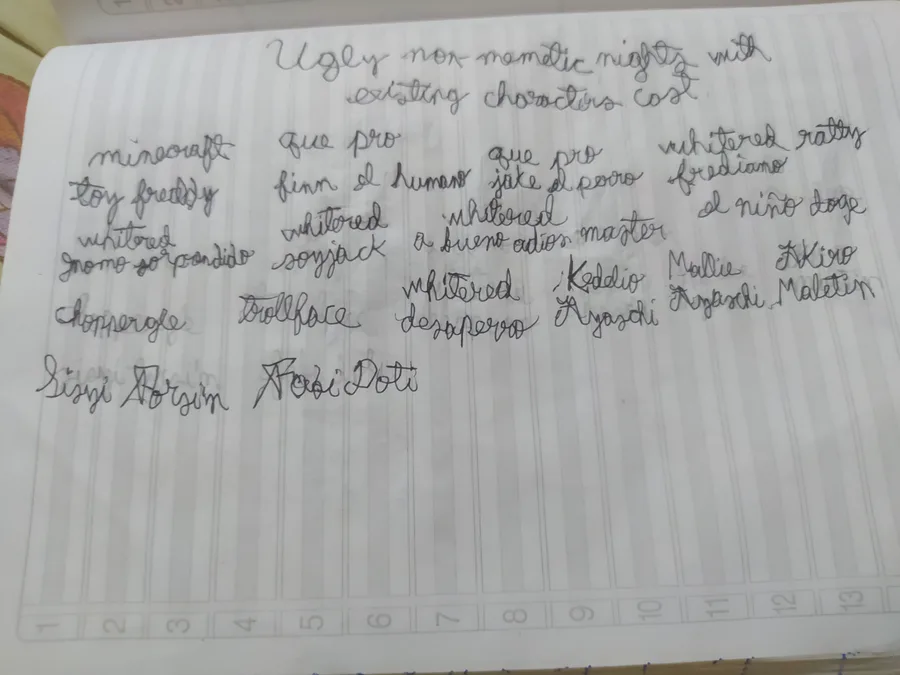 Ugly non mematic nights with
existing characters cast
minecraft que pro que pro whitered ratty
toy freddy finn el humano jake el perro frediano
whitered whitered whitered el niño doge
gnomo sorprendido soyjack a bueno adios master
whitered Keddio Mallie Akiro
choppergle trollface desaperro Ayaschi Ayaschi Maletin
Sisyi Forsin Fosi Doti
1 2 3 4 5 6 7 8 9 10 11 12 13